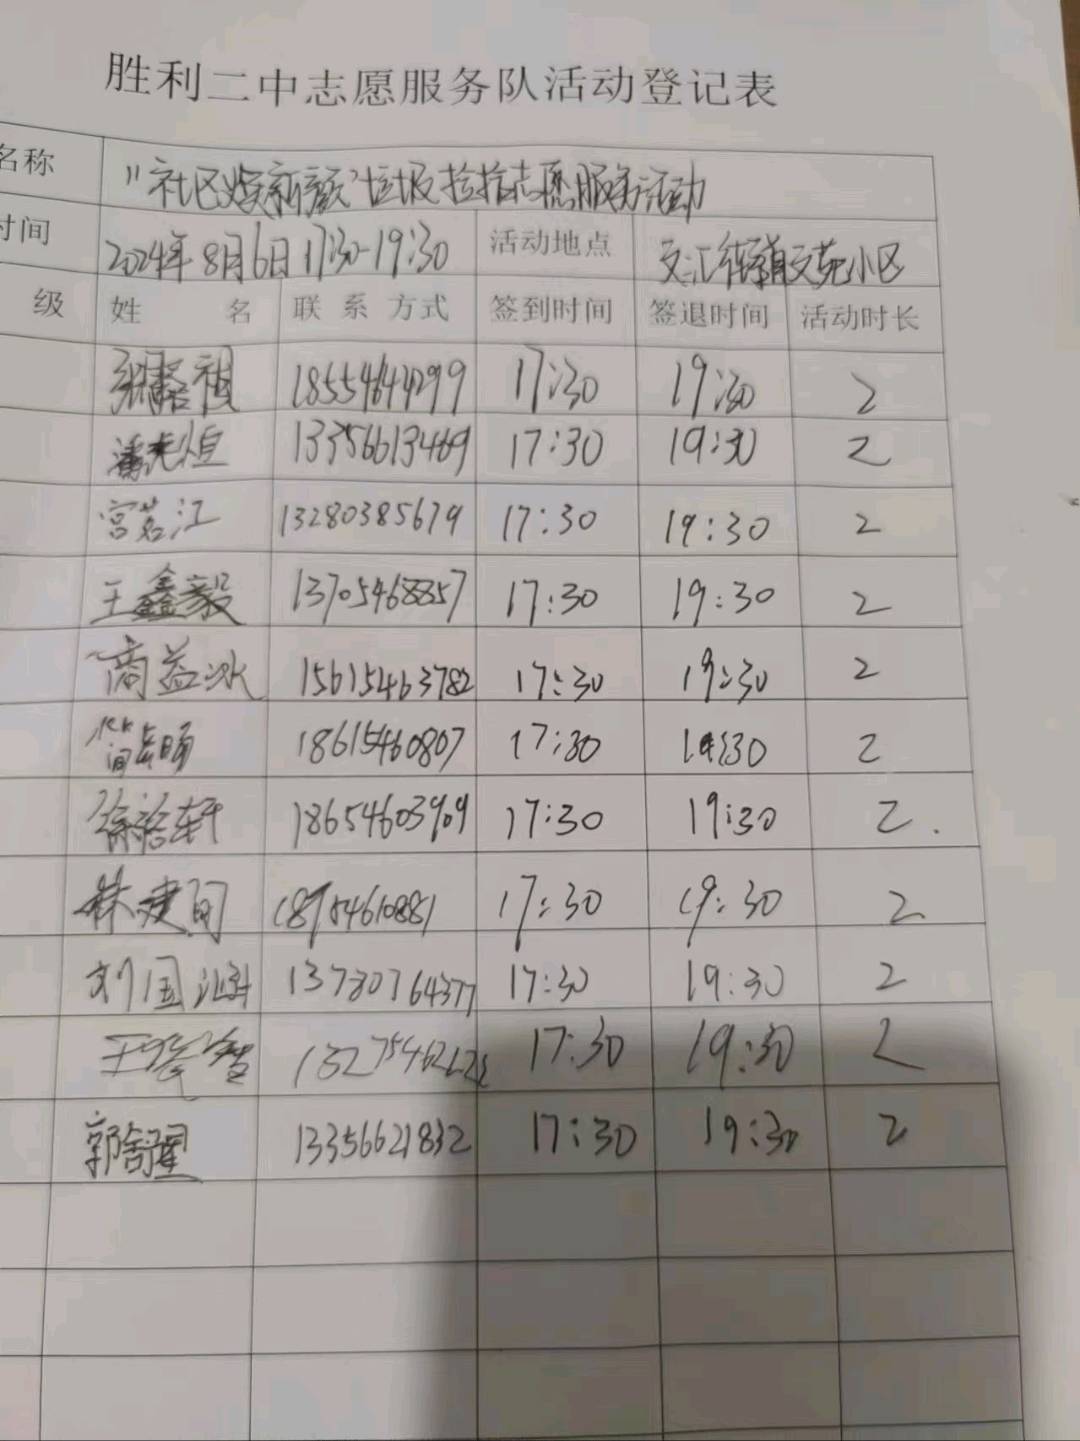 胜利二中志愿服务队活动登记表
名称 "社区焕新颜"垃圾捡拾志愿服务活动
时间 2024年8月6日17:30-19:30 活动地点 文汇街道文苑小区
级 姓 名 联系方式 签到时间 签退时间 活动时长
17:30 19:30 2
13356613469 17:30 19:30 2
宫茗江 13280385679 17:30 19:30 2
王鑫毅 13705468857 17:30 19:30 2
商益冰 15615463782 17:30 19:30 2
18615460807 17:30 19:30 2
徐裕轩 18654603909 17:30 19:30 2
林建闰 17:30 19:30 2
刘国 13780764377 17:30 19:30 2
王 17:30 19:30 2
郭 13356621832 17:30 19:30 2